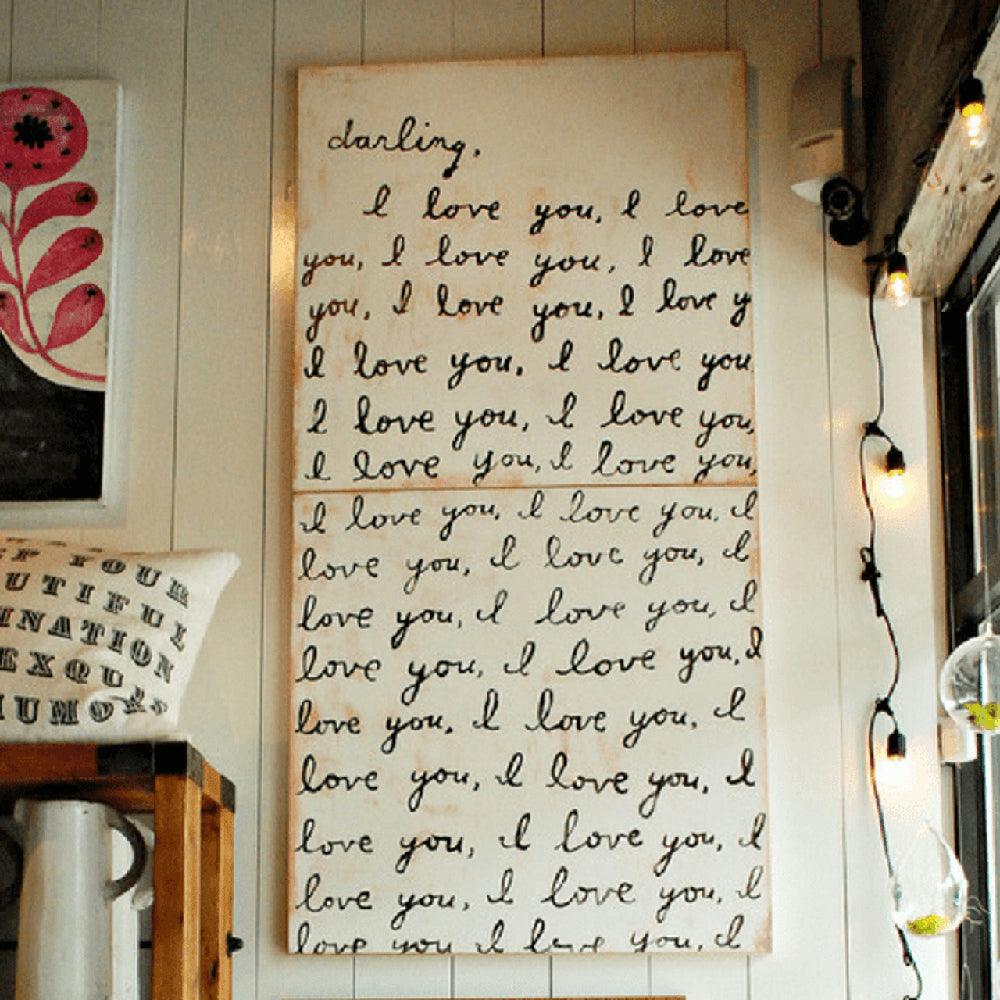 darling,
I love you, I love
you, I love you, I love
you, I love you, I love y
I love you, I love you
I love you, I love you,
I love you, I love you,
I love you, I love you, I
love you, I love you, I
love you, I love you, I
love you, I love you, I
love you, I love you, I
love you, I love you, I
love you, I love you, I
love you, I love you, I
love you I love you, I
YOUR
UTIFUL
INATION
EXQU
UMO